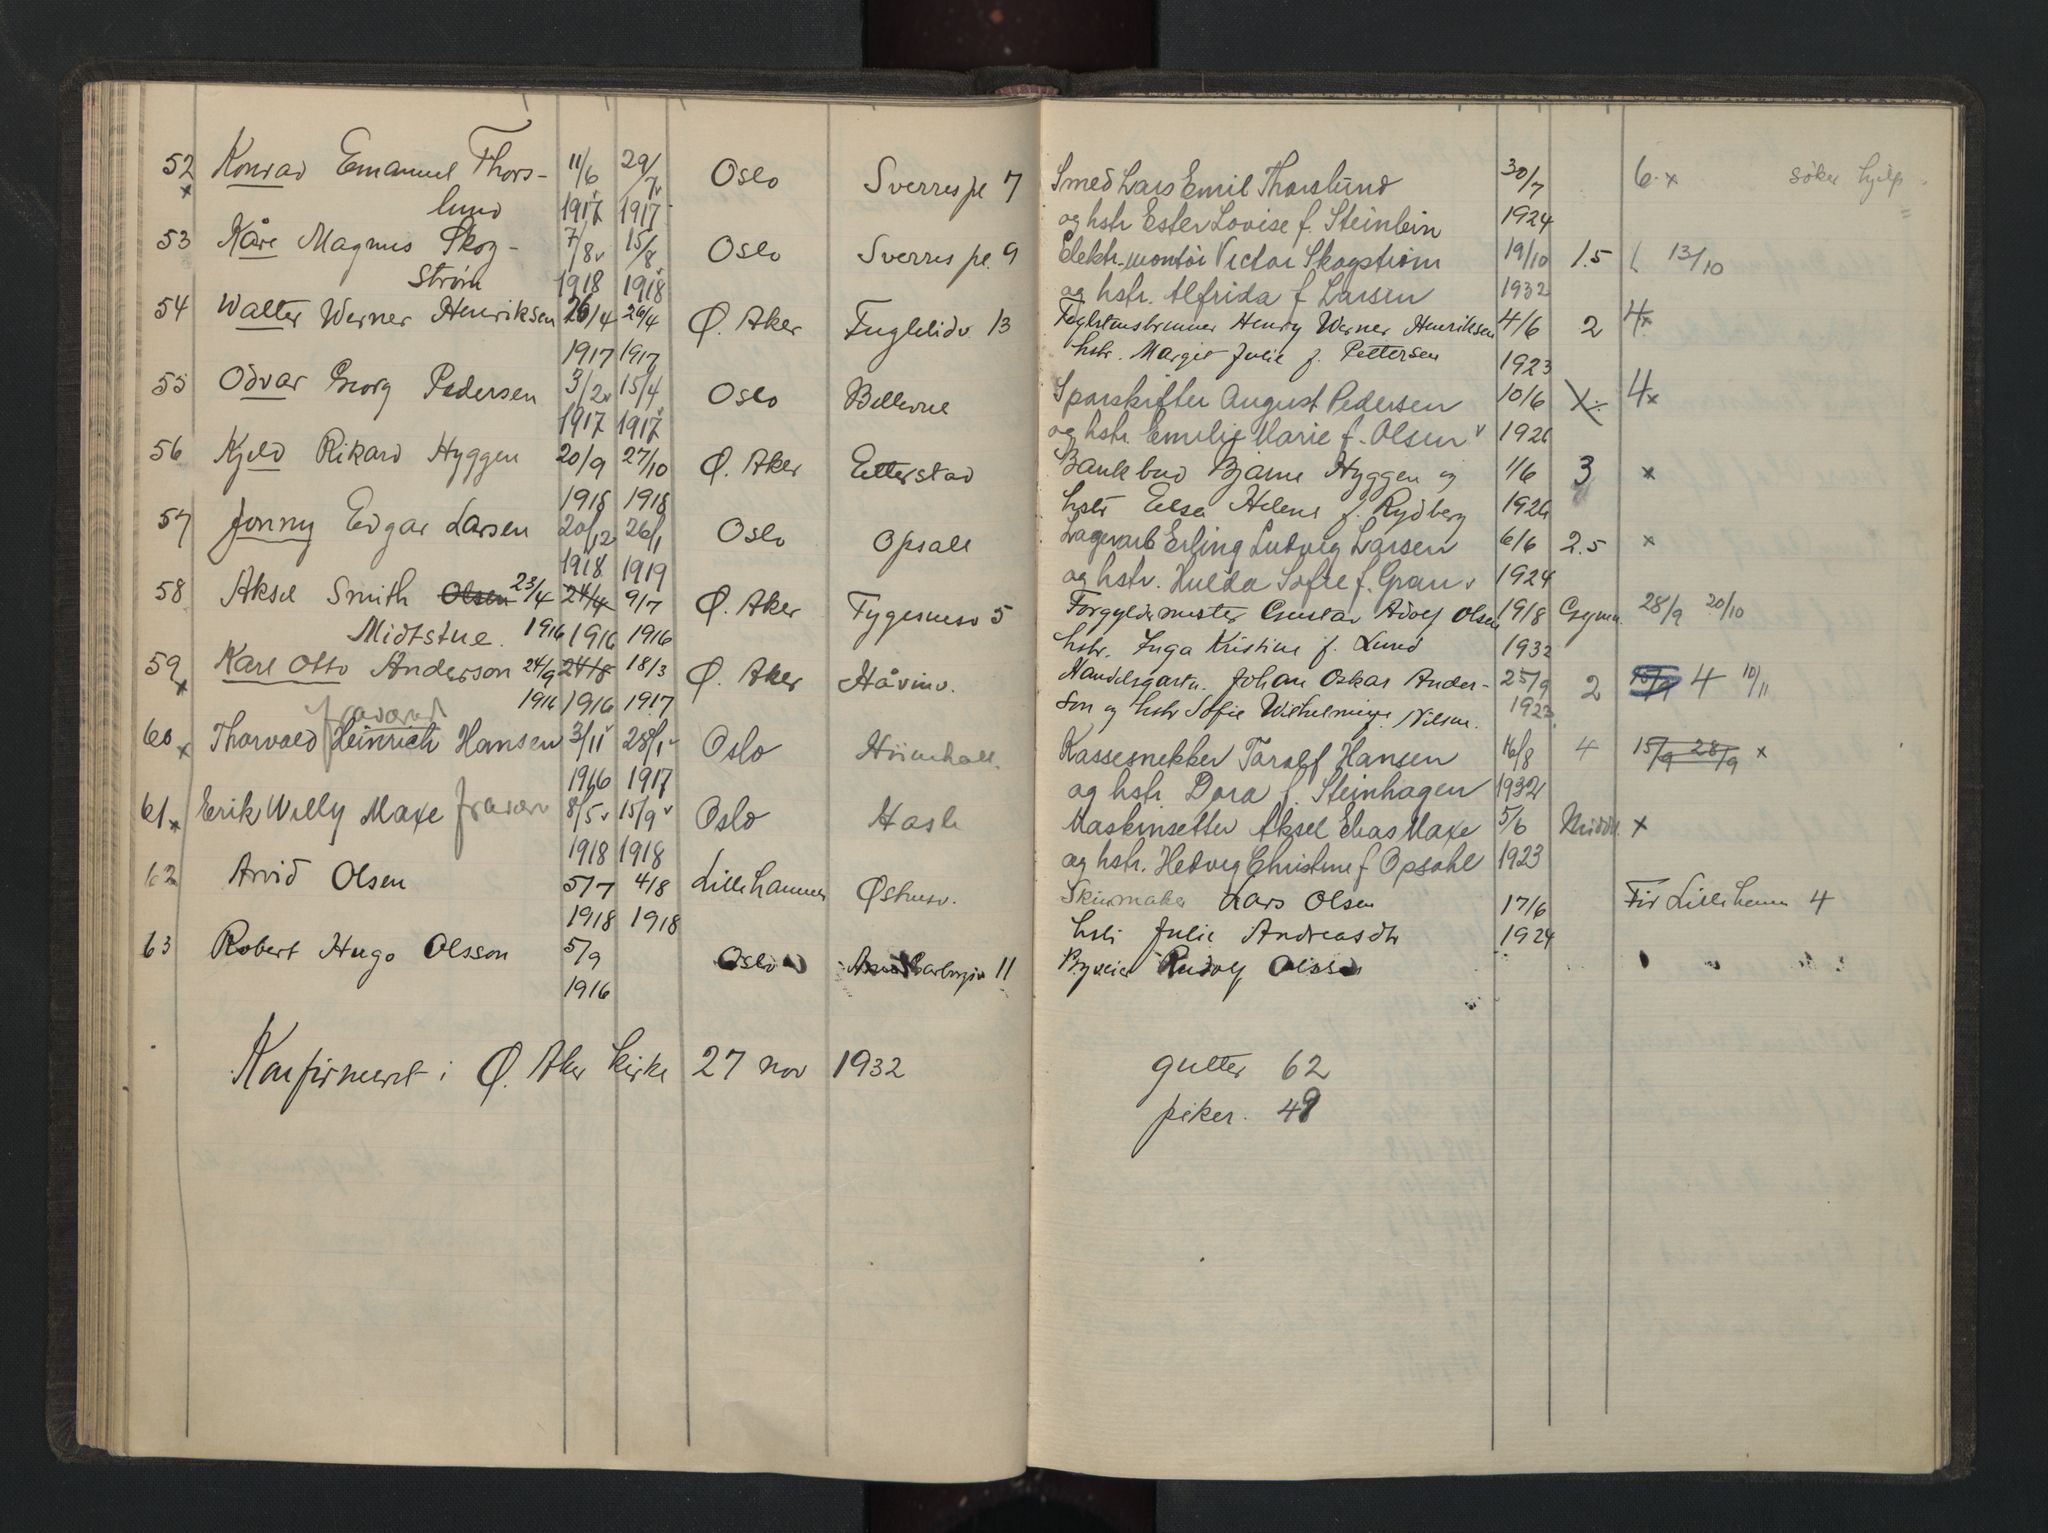 52 Konrad Emanuel Thors- 11/6 29/7 Oslo Sverres pl 7 Smed Lars Emil Thorslund 30/7 6 x søker hjelp
x lund 1917 1917 og hstr Ester Lovise f. Steinlein 1924
53 Kåre Magnus Skog- 7/8 15/8 Oslo Sverres pl. 9 Elektr.montør Victor Skogstrøm 19/10 1.5 13/10
strøm 1918 1918 og hstr. Alfrida f Larsen 1932
54 Walter Werner Henriksen 26/4 26/4 Ø. Aker Fuglelidv. 13 Henry Werner Henriksen 4/6 2 4 x
1917 1917 hstr. Margit Julie f. Pettersen 1923
55 Odvar Georg Pedersen 3/2 15/4 Oslo Bellevue Sporskifter August Pedersen 10/6 4 x
1917 1917 og hstr. Emilie Marie f. Olsen 1926
56 Kjeld Rikard Hyggen 20/9 27/10 Ø. Aker Etterstad Bankbud Bjarne Hyggen og 1/6 3 x
1918 1918 hstr Elsa Helene f. Rydberg 1926
57 Jonny Edgar Larsen 20/12 26/1 Oslo Opsall Lagerarb Erling Ludvig Larsen 6/6 2.5 x
1918 1919 og hstr. Hulda Sofie f. Gran 1924
58 Aksel Smith Olsen 23/4 24/4 9/7 Ø. Aker 5 Forgyldermester Gustav Adolf Olsen 19/8 Gymn. 28/9 20/10
Midtstue. 1916 1916 1916 hstr. Inga Kristine f. Lund 1932
59 Karl Otto Anderson 24/9 24/8 18/3 Ø. Aker Håvinv. Handelsgartn. Johan Oskar Ander- 25/9 2 15/9 4 10/11
x 1916 1916 1917 son og hstr Sofie Wilhelmine f. Nilsen. 1923
fraværd
60 x Thorvald Heinrich Hansen 3/11 28/1 Oslo Kassesnekker Toralf Hansen 16/8 4 15/9 28/9 x
1916 1917 og hstr. Dora f. Steinhagen 1932
61 x Erik Willy Maxe 8/5 15/9 Oslo Hasle Maskinsetter Aksel Elias Maxe 5/6 Middel x
1918 1918 og hstr. Hedvig Christine f Opsahl 1923
62 Arvid Olsen 5/7 4/8 Lillehammer Østrev. Skinmaker Lars Olsen 17/6 Fir Lillehamm 4
1918 1918 hstr Julie Andreasdtr 1924
63 Robert Hugo Olsson 5/9 Oslo 11 Rudolf Olsson
1916
Konfirmeret i Ø. Aker kirke 27 nov 1932 gutter 62
piker. 49